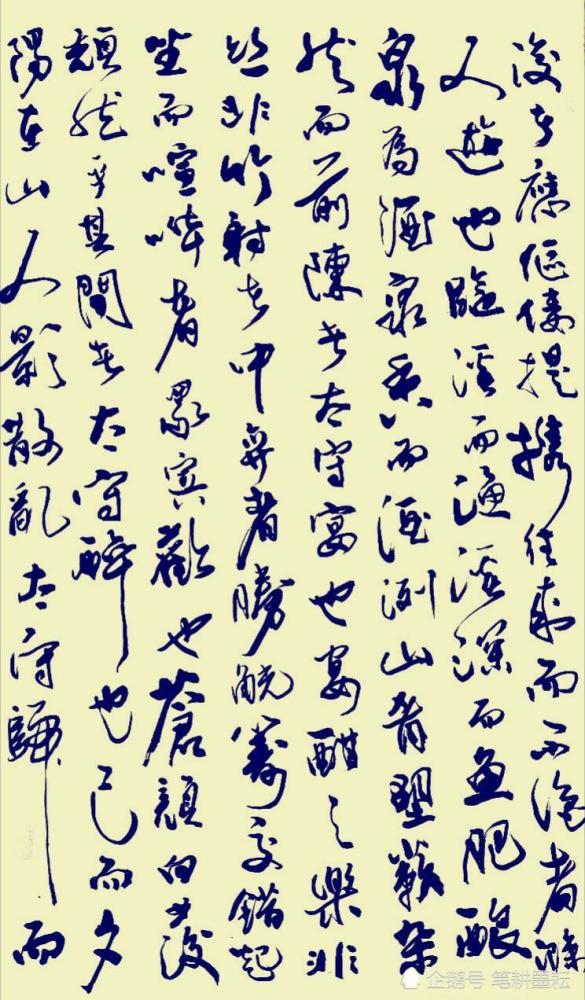 後者應傴僂提攜往來而不絕者滁
人遊也臨溪而漁溪深而魚肥釀
泉為酒泉香而酒洌山肴野蔌雜
然而前陳者太守宴也宴酣之樂非
絲非竹射者中弈者勝觥籌交錯起
坐而喧嘩者眾賓歡也蒼顏白髮
頹然乎其間者太守醉也已而夕
陽在山人影散亂太守歸而
企鹅号 笔耕墨耘